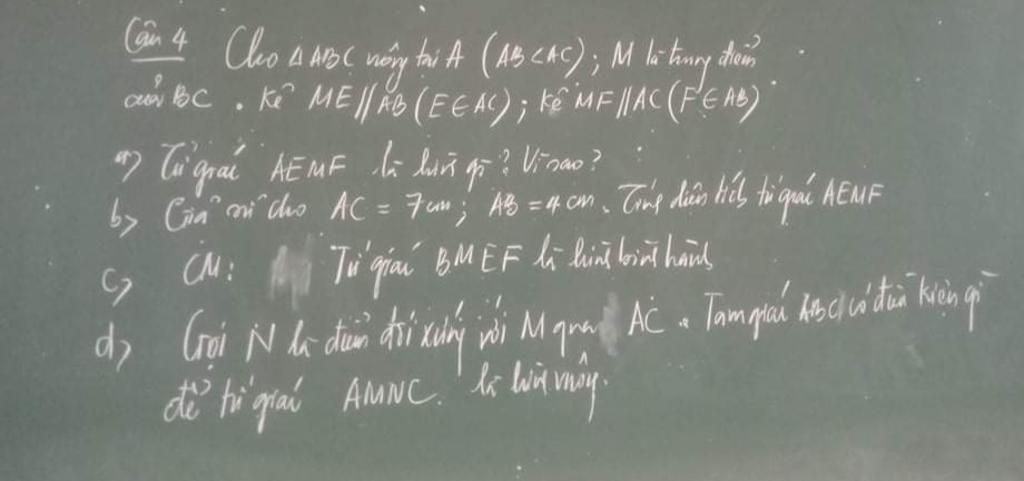 Câu 4 Cho ΔABC vuông tại A (AB < AC); M là trung điểm
của BC. Kẻ ME // AB (E ∈ AC); kẻ MF // AC (F ∈ AB)
a) Tứ giác AEMF là hình gì? Vì sao?
b) Giả sử cho AC = 7cm; AB = 4cm. Tính diện tích tứ giác AEMF
c) CM: Tứ giác BMEF là hình bình hành
d) Gọi N là điểm đối xứng với M qua AC. Tam giác ABC có điều kiện gì
để tứ giác AMNC. là hình vuông.